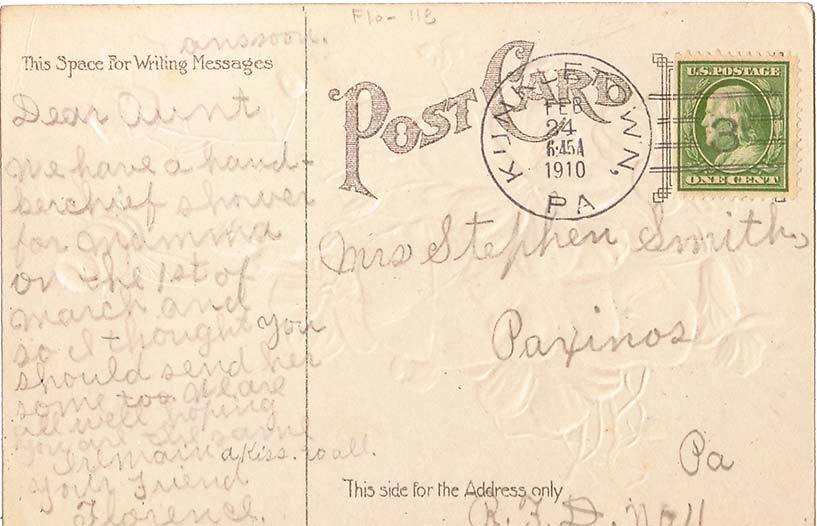 Flo- 118
anssoon.
This Space For Writing Messages
Dear Aunt
We have a hand-
kerchief shower
for Mamma
on the 1st of
March and
so I thought you
should send her
some too We are
all well hoping
you are the same
I remain a kiss. to all.
Your Friend
Florence.
POST CARD
FEB
24
6:45A
1910
PA
U.S. POSTAGE
3
ONE CENT
Mrs Stephen Smith,
Paxinos
Pa
This side for the Address only
R. F. D.